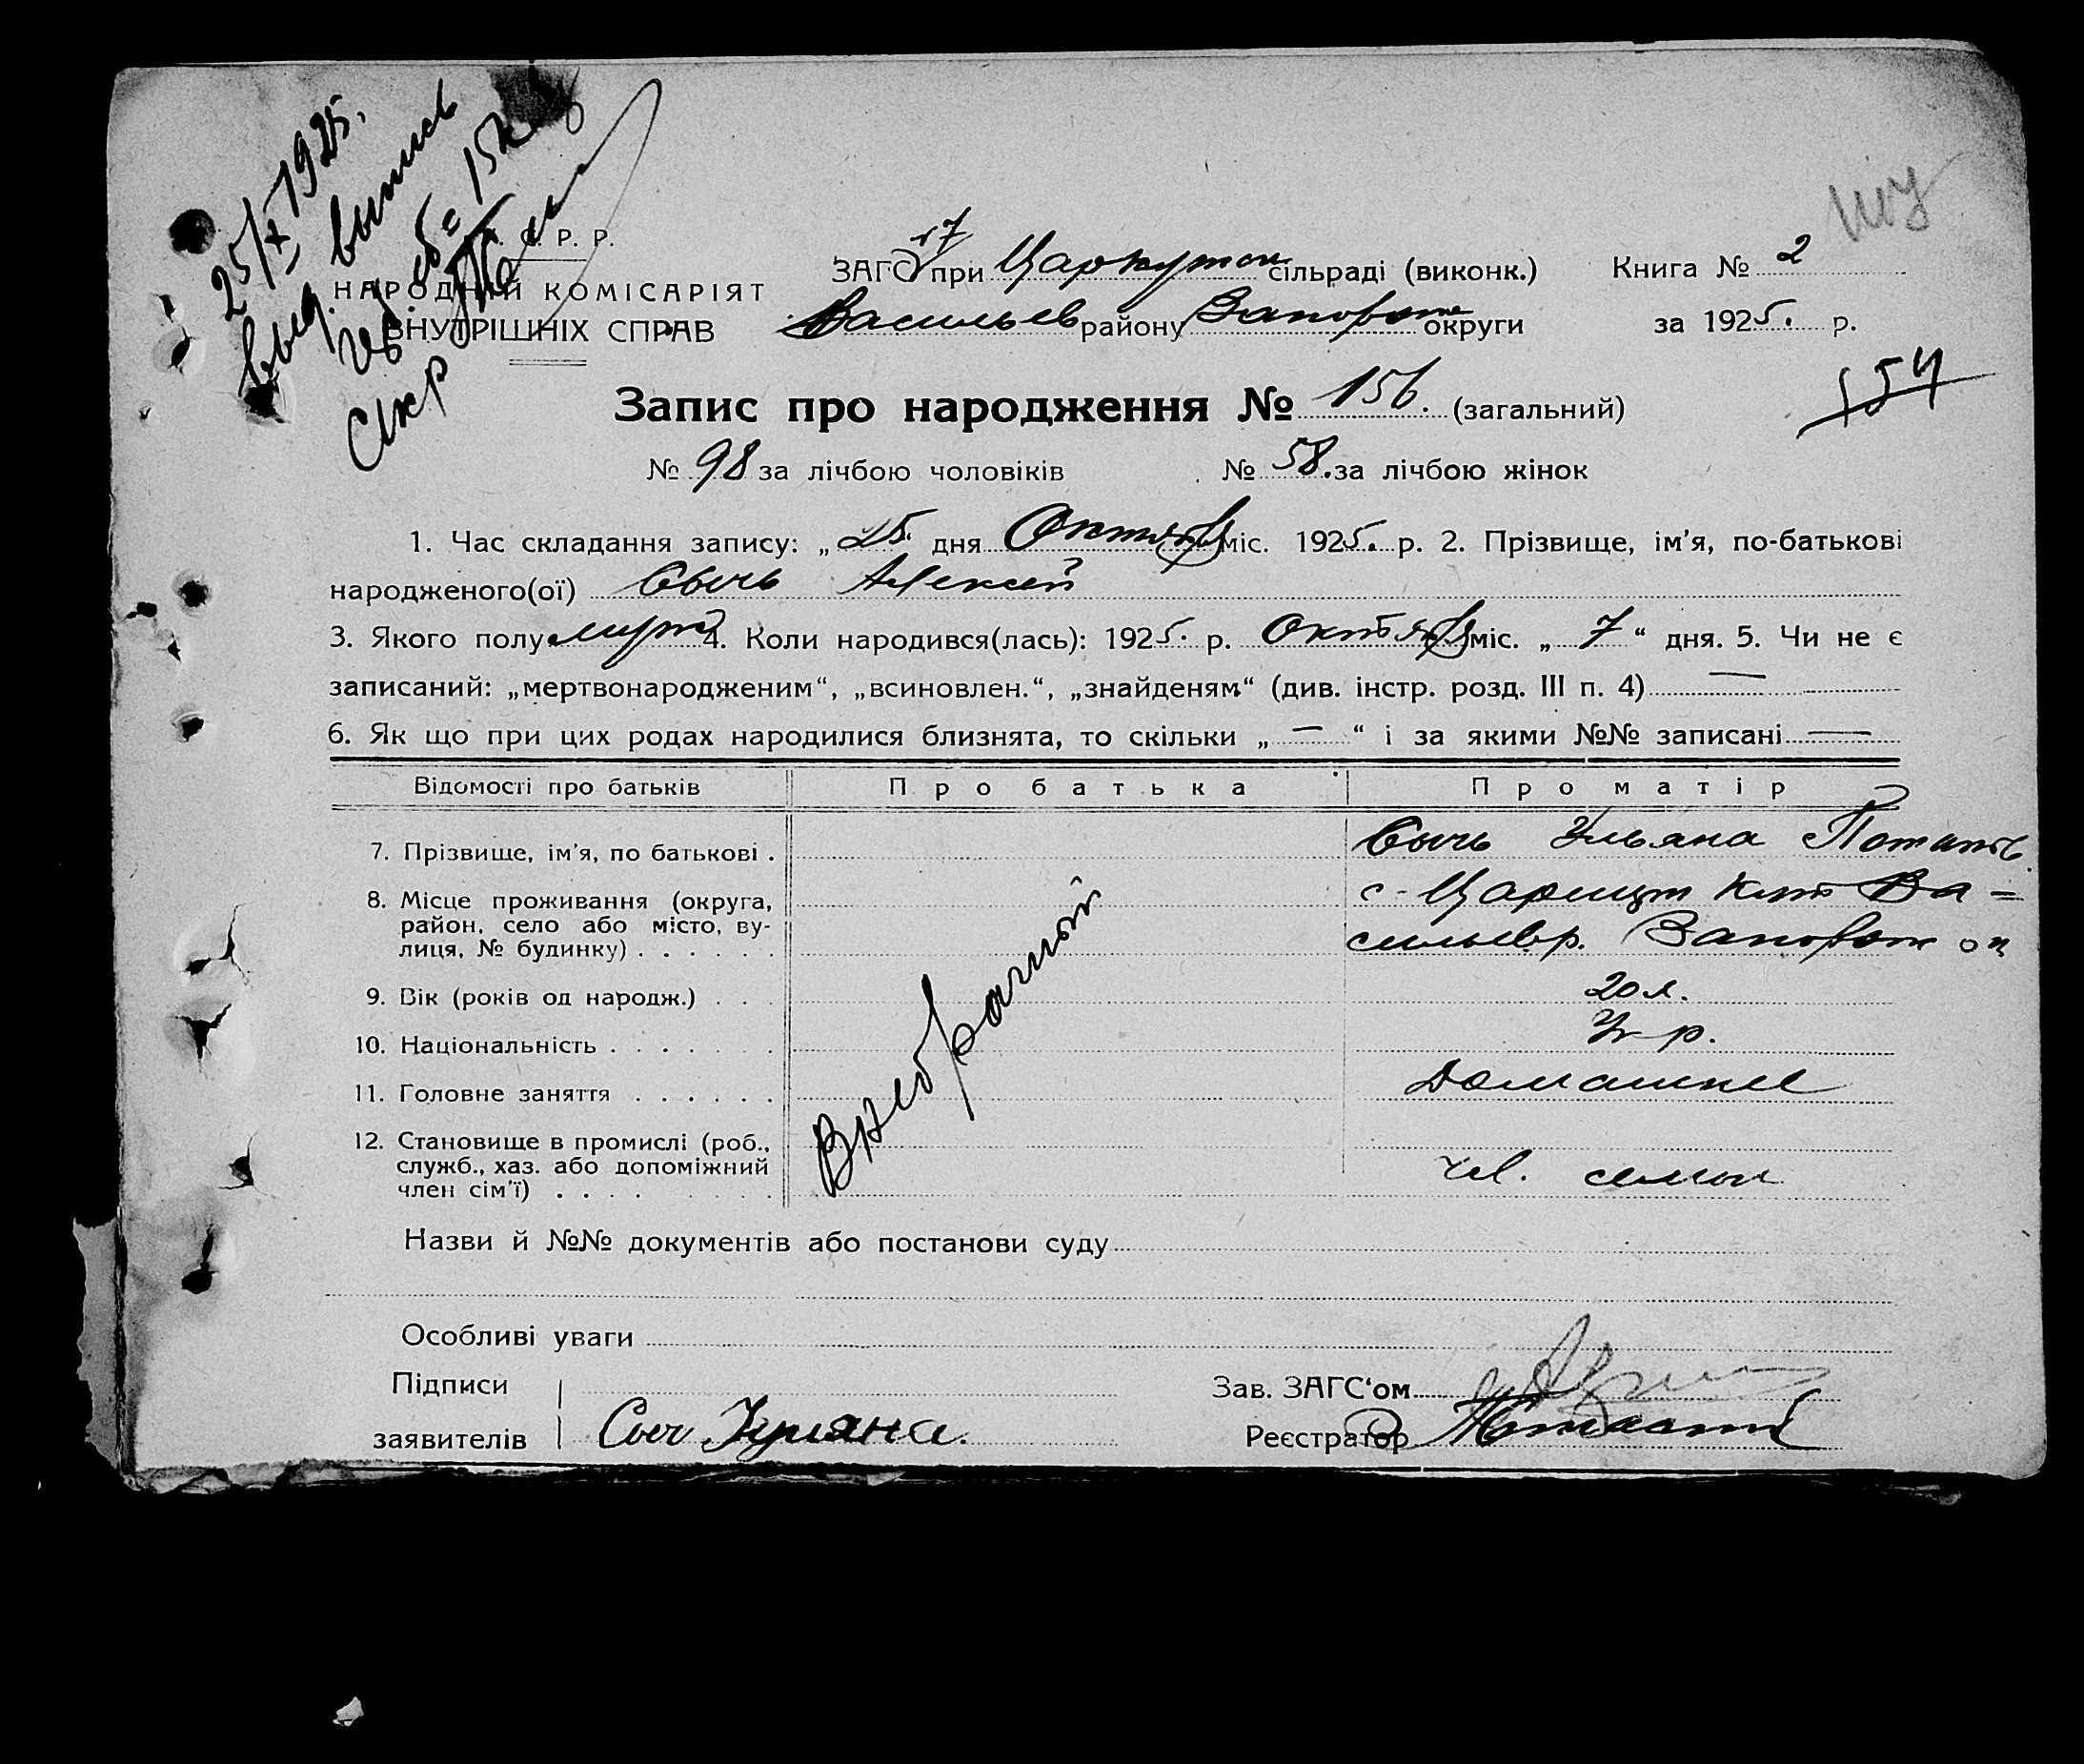 25/X 1925.
выд. выпись
= 15к
С. Р. Р.
НАРОДНІЙ КОМІСАРІЯТ
ВНУТРІШНІХ СПРАВ
17
ЗАГС при Царкутон сільраді (виконк.) Книга № 2
Васильев району Запорож округи за 1925. р.
Запис про народження № 156. (загальний) 154
№ 98 за лічбою чоловіків № 58. за лічбою жінок
1. Час складання запису: „25. дня Октября міс. 1925. р. 2. Прізвище, ім'я, по-батькові
народженого(ої) Сычь Алексей
3. Якого полу мужс 4. Коли народився(лась): 1925. р. Октября міс. „ 7 “ дня. 5. Чи не є
записаний: „мертвонародженим“, „всиновлен.“, „знайденям“ (див. інстр. розд. III п. 4) —
6. Як що при цих родах народилися близнята, то скільки „ — “ і за якими №№ записані —
Відомості про батьків Про батька Про матір
7. Прізвище, ім'я, по батькові . Сычь Ульяна Потапов
8. Місце проживання (округа, с. Царицын Кут Ва=
район, село або місто, ву-
лиця, № будинку) . . . . . . сильевр. Запорож ок
9. Вік (років од народж.) . . . 20 л.
10. Національність . . . . . . . Укр.
11. Головне заняття . . . . . . Домашнее
12. Становище в промислі (роб.,
служб., хаз. або допоміжний чл. семьи
член сім'ї) . . . .
Внебрачный
Назви й №№ документів або постанови суду
Особливі уваги
Підписи Зав. ЗАГС'ом
заявителів Сыч Ульяна. Реєстратор